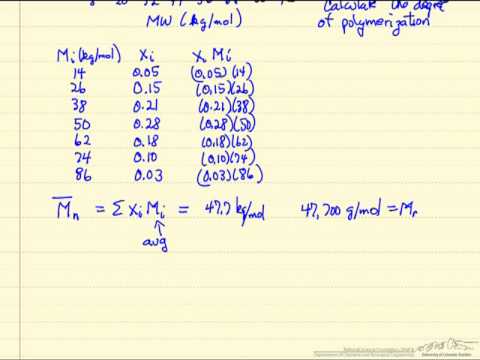 Calculate the degree
MW (kg/mol) of polymerization
Mi (kg/mol) xi xi Mi
14 0.05 (0.05)(14)
26 0.15 (0.15)(26)
38 0.21 (0.21)(38)
50 0.28 (0.28)(50)
62 0.18 (0.18)(62)
74 0.10 (0.10)(74)
86 0.03 (0.03)(86)
M̅n = Σ xi Mi = 47.7 kg/mol 47,700 g/mol = M
avg